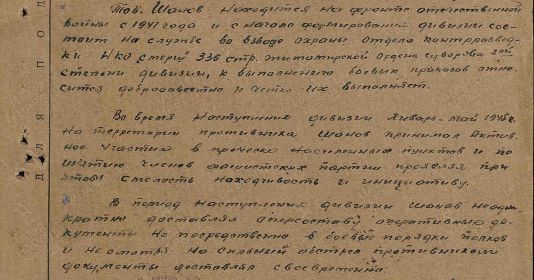 Тов. Шанов находится на фронте отечественной
войны с 1941 года и с начала формирования дивизии сос-
тоит на службе во взводе охраны Отдела Контрразвед-
ки НКО Смерш 336 стр. Житомирской Ордена Суворова 2ой
степени дивизии, к выполнению боевых приказов отно-
сится добросовестно и четко их выполняет.
Во время наступления дивизии Январь-май 1945г.
на территории противника Шанов принимал Актив-
ное участие в проческе населенных пунктов и по
из'ятию членов фашистских партии проявляя при
этом смелость находчивость и инициативу.
В период наступления дивизии Шанов неодно-
кратно доставлял оперсоставу оперативные до-
кументы не посредственно в боевые порядки полков
и не смотря на сильный обстрел противником
документы доставлял своевременно.
ДЛЯ ПОД